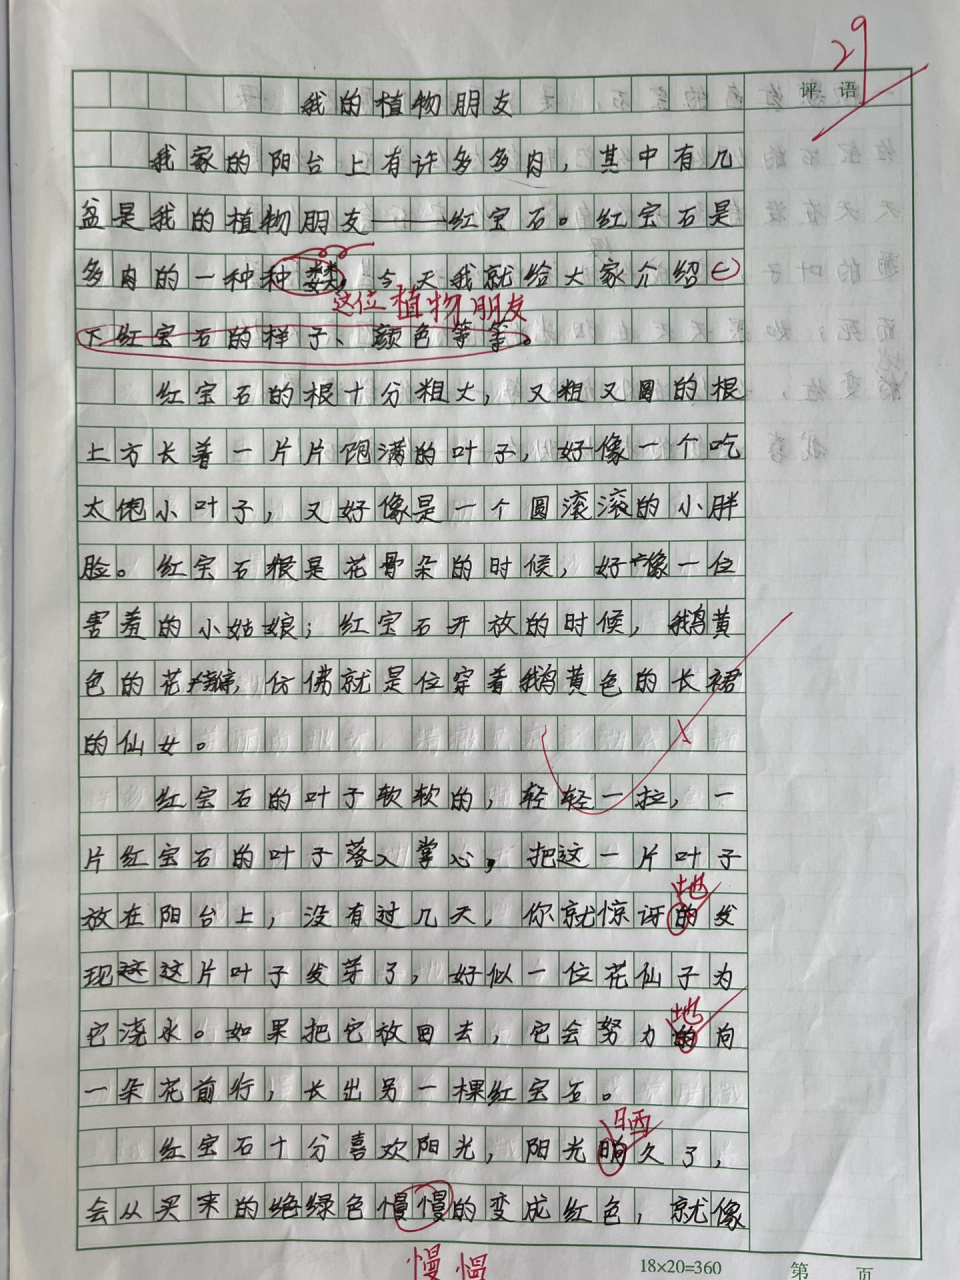 29
评语
我的植物朋友
我家的阳台上有许多多肉，其中有几
盆是我的植物朋友——红宝石。红宝石是
多肉的一种种类，今天我就给大家介绍一
这位植物朋友
下红宝石的样子、颜色等等。
红宝石的根十分粗大，又粗又圆的根
上方长着一片片饱满的叶子，好像一个吃
太饱小叶子，又好像是一个圆滚滚的小胖
脸。红宝石根是花骨朵的时候，好像一位
害羞的小姑娘；红宝石开放的时候，鹅黄
色的花瓣，仿佛就是位穿着鹅黄色的长裙
的仙女。
红宝石的叶子软软的，轻轻一拉，一
片红宝石的叶子落入掌心，把这一片叶子
地
放在阳台上，没有过几天，你就惊讶的发
现这这片叶子发芽了，好似一位花仙子为
地
它浇水。如果把它放回去，它会努力的向
一朵花前行，长出另一棵红宝石。
晒
红宝石十分喜欢阳光，阳光晌久了，
会从买来的绝绿色慢慢的变成红色，就像
慢慢
18×20=360 第 页